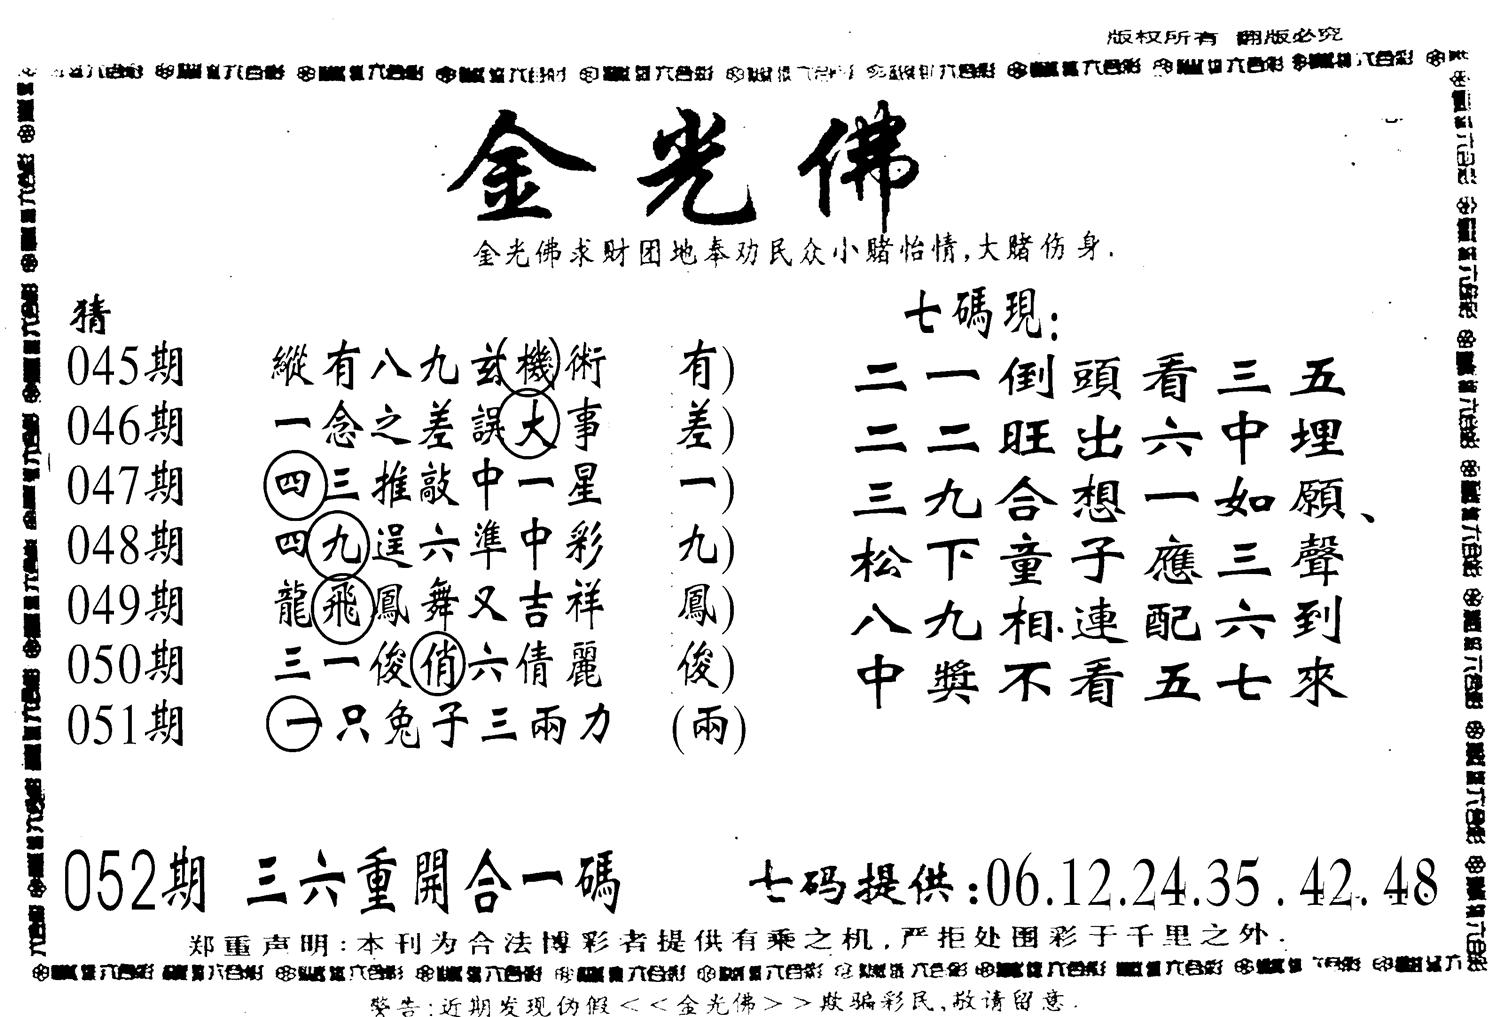 版权所有 翻版必究
金光佛
金光佛求财团地奉劝民众小赌怡情,大赌伤身.
猜
045期 縱有八九玄機術 有)
046期 一念之差誤大事 差)
047期 四三推敲中一星 一)
048期 四九逞六準中彩 九)
049期 龍飛鳳舞又吉祥 鳳)
050期 三一俊俏六倩麗 俊)
051期 一只兔子三兩力 (兩)
七碼現:
二一倒頭看三五
二二旺出六中埋
三九合想一如願、
松下童子應三聲
八九相連配六到
中獎不看五七來
052期 三六重開合一碼 七码提供:06.12.24.35.42.48
郑重声明:本刊为合法博彩者提供有乘之机,严拒处围彩于千里之外.
警告:近期发现伪假<<金光佛>>欺骗彩民,敬请留意.